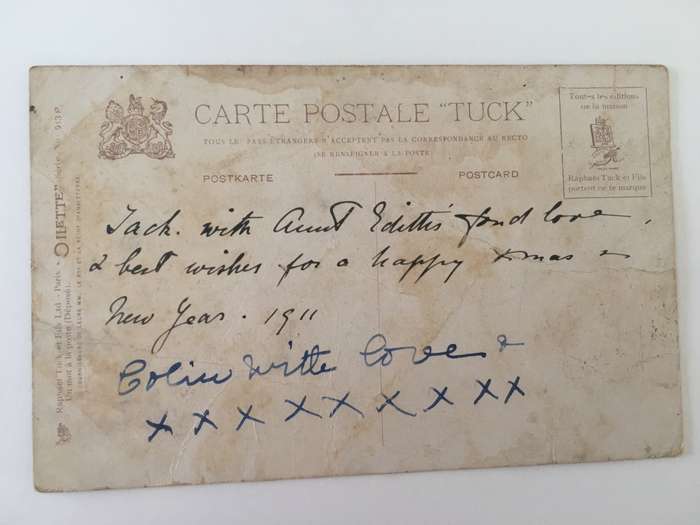 CARTE POSTALE "TUCK"
TOUS LE PAYS ÉTRANGERS N'ACCEPTENT PAS LA CORRESPONDANCE AU RECTO
(SE RENSEIGNER A LA POSTE)
POSTKARTE POSTCARD
Toutes les éditions
de la maison
Raphael Tuck et Fils
portent cette marque
Jack. with Aunt Edith's fond love,
& best wishes for a happy Xmas &
New Year. 1911
Colin with love &
x x x x x x x x x x
Raphael Tuck et Fils Ltd - Paris - "OILETTE"
Un mot à la poste (Déposé).